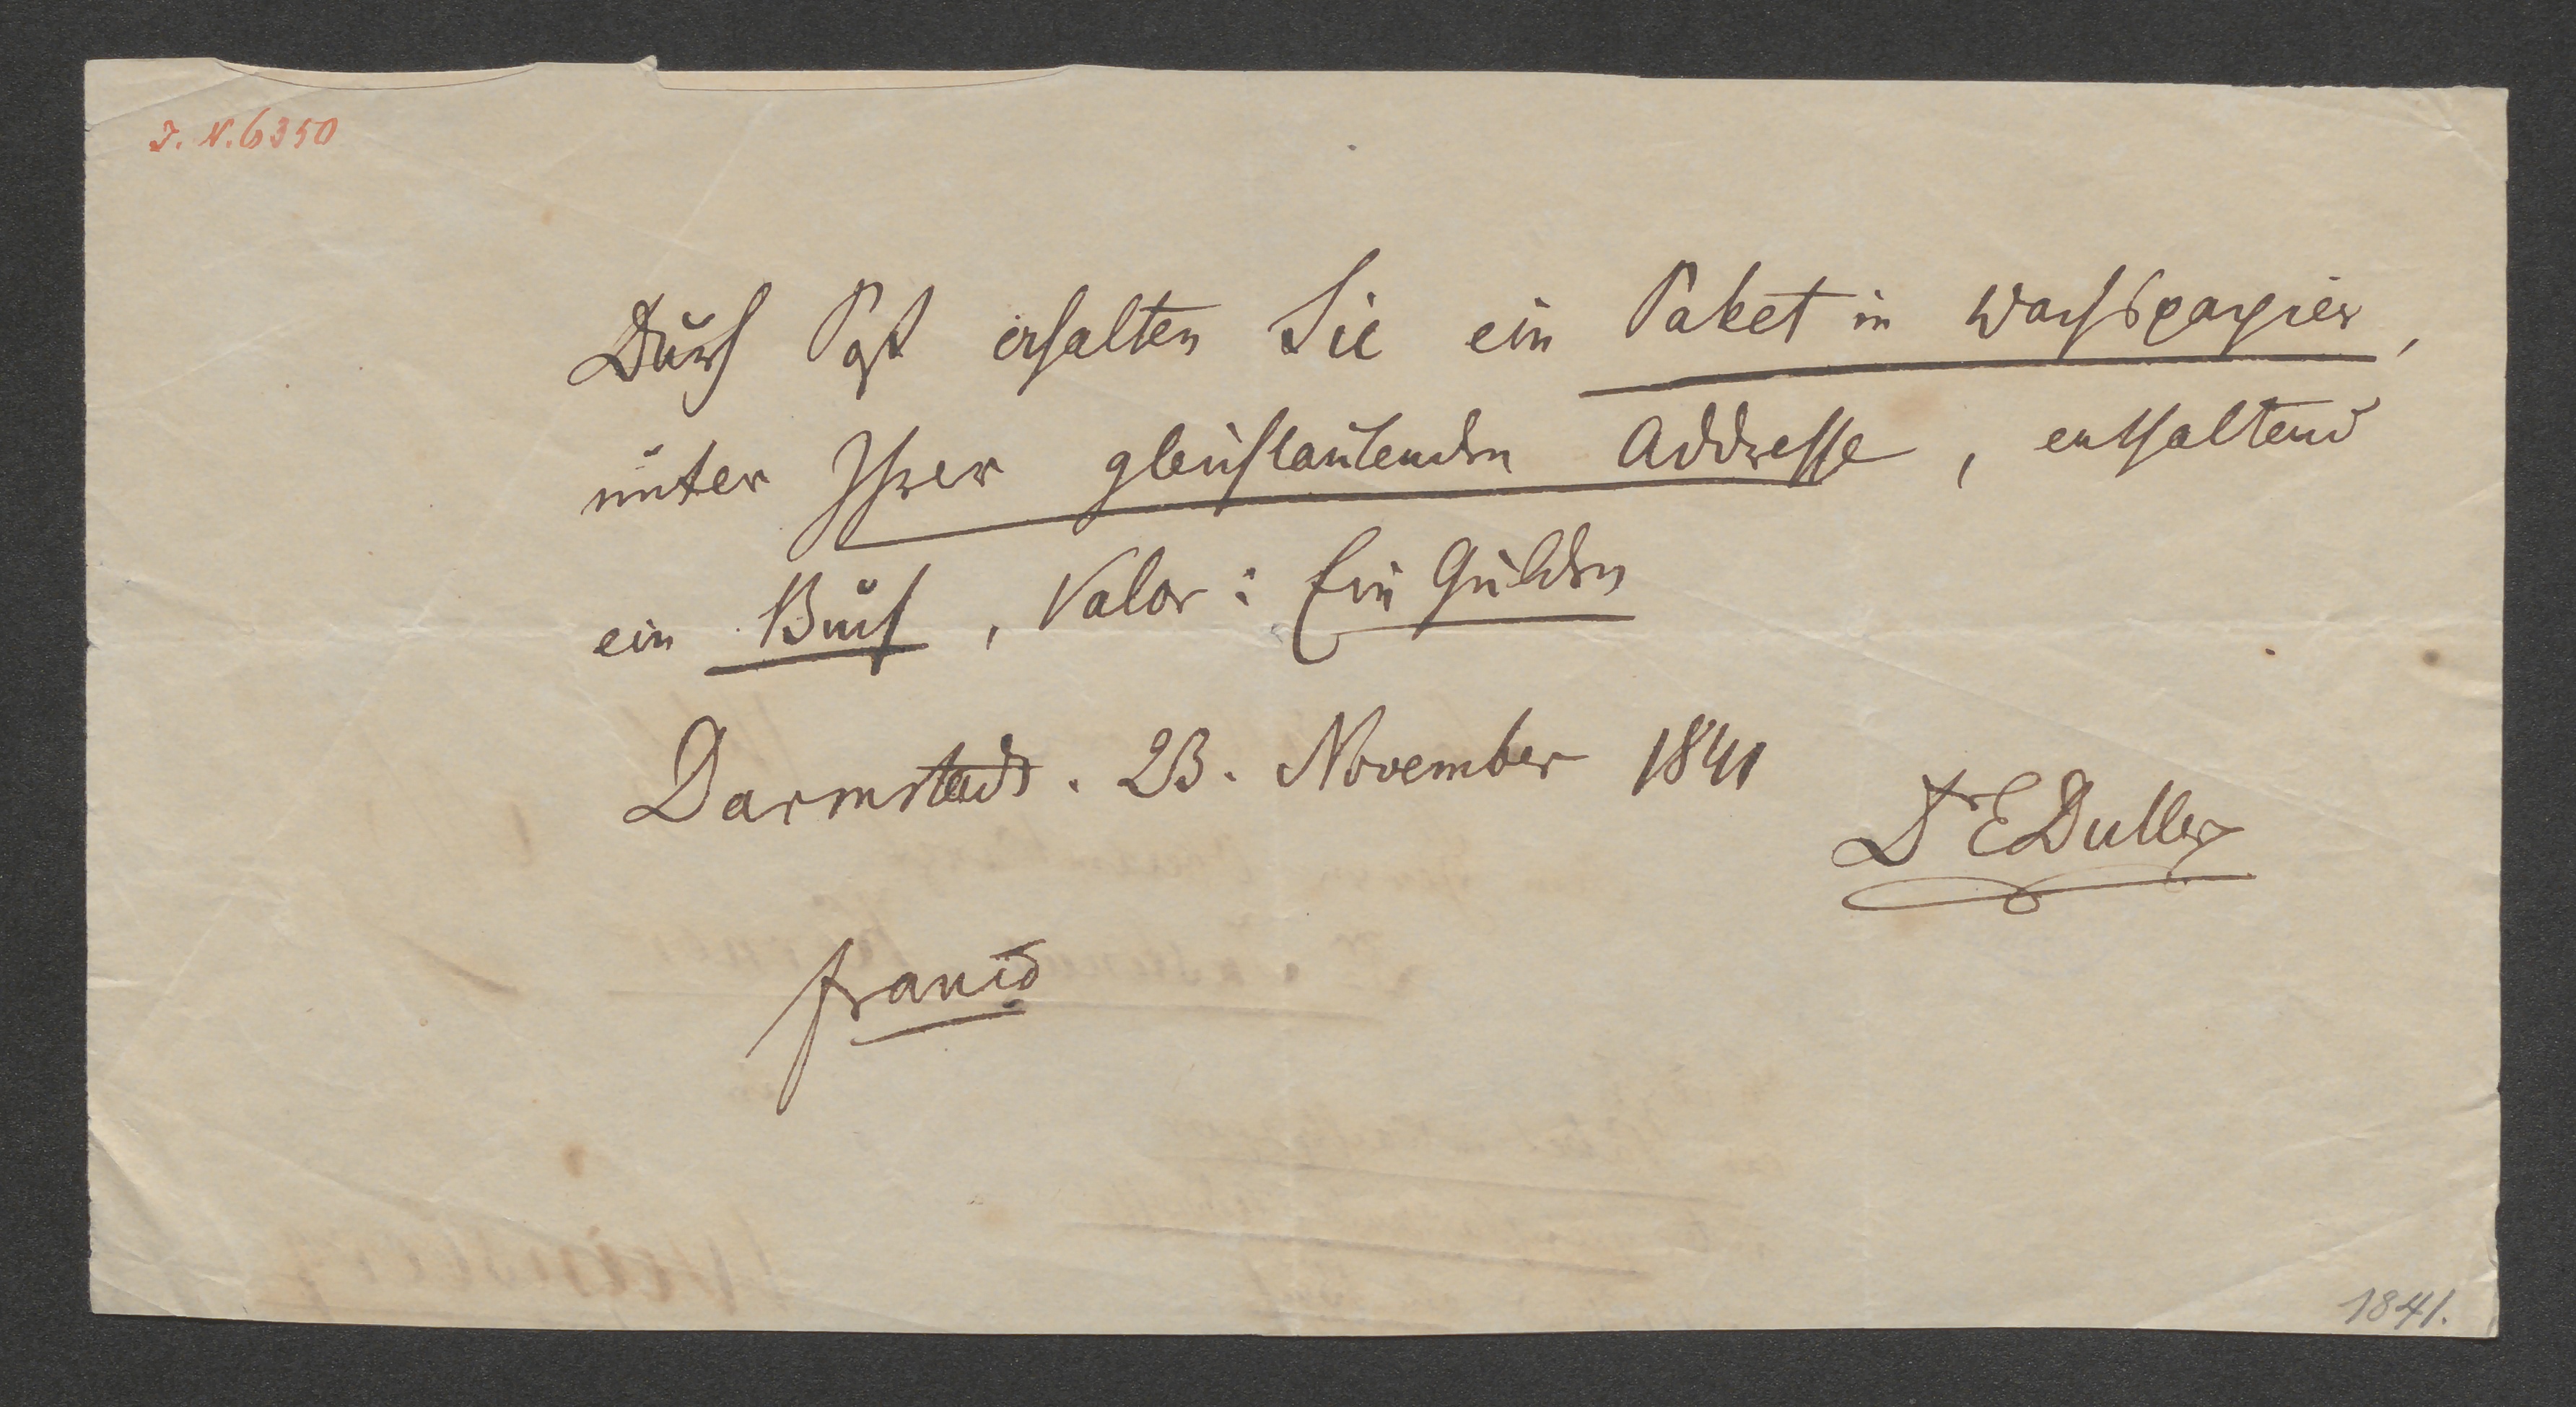 J. N. 6350
Durch Post erhalten Sie ein Paket in Wachspapier,
unter Ihrer gleichlautenden Addresse, enthaltend
ein Buch, Valor: Ein Gulden
Darmstadt. 23. November 1841
Dr EDuller
franco
1841.